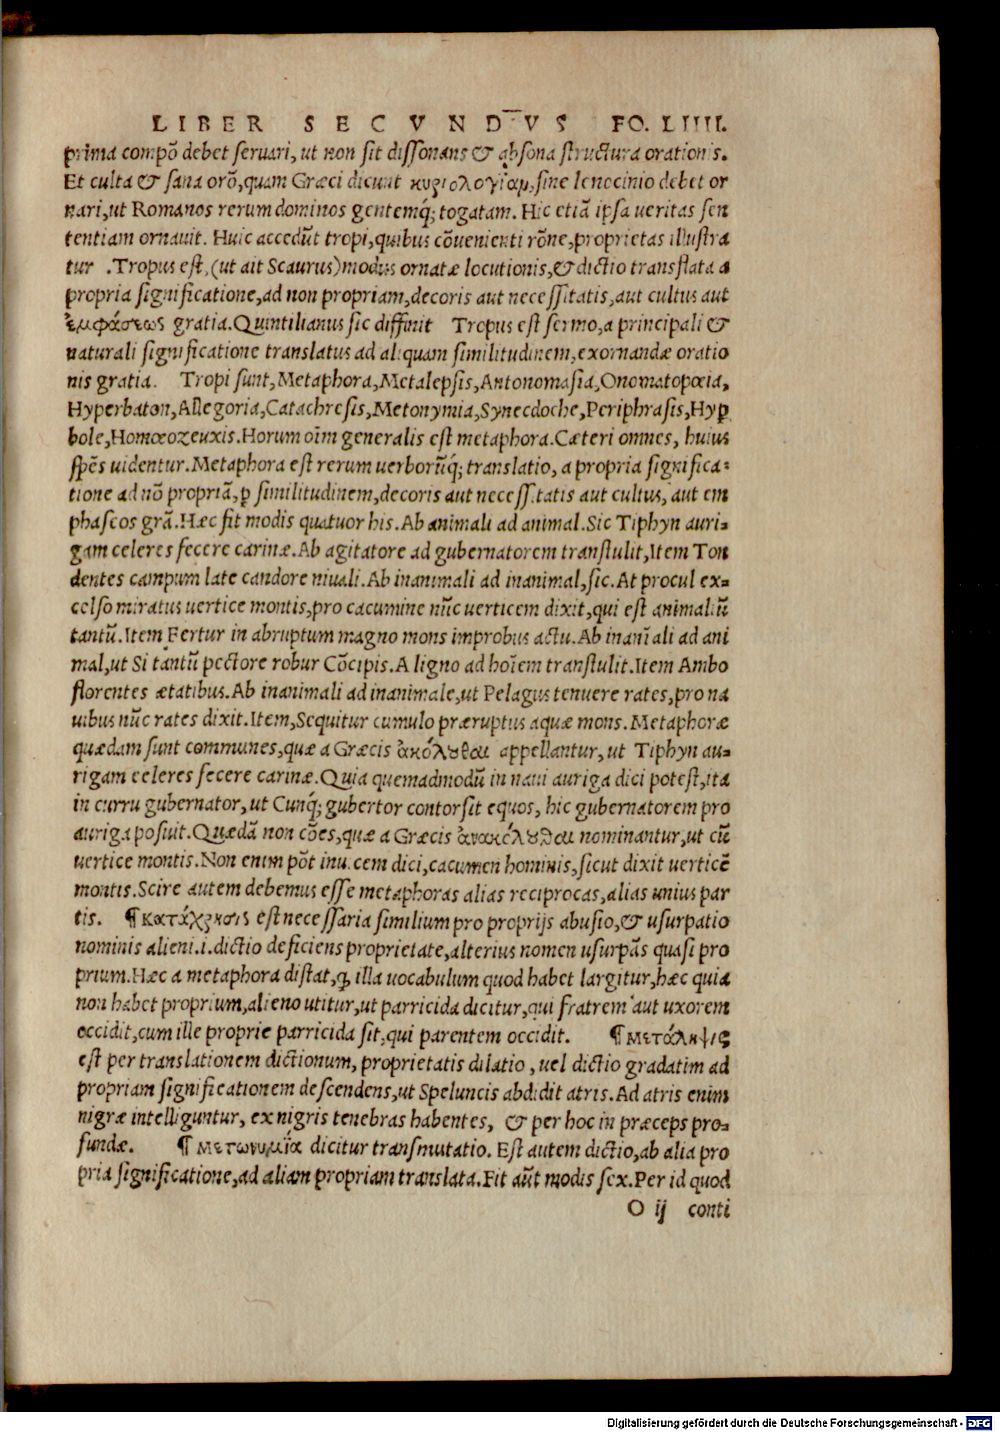 LIBER SECVNDVS FO. LIIII.
prima compõ debet seruari, ut non sit dissonans & absona structura orationis.
Et culta & sana orõ, quam Græci dicunt κυριολογίαμ, sine lenocinio debet or
nari, ut Romanos rerum dominos gentemq́; togatam. Hic etiã ipsa ueritas sen
tentiam ornauit. Huic accedũt tropi, quibus cõuenienti rõne, proprietas illustra
tur. Tropus est, (ut ait Scaurus) modus ornatæ locutionis, & dictio translata a
propria significatione, ad non propriam, decoris aut necessitatis, aut cultus aut
ἐμφάσεως gratia. Quintilianus sic diffinit Tropus est sermo, a principali &
naturali significatione translatus ad aliquam similitudinem, exornandæ oratio
nis gratia. Tropi sunt, Metaphora, Metalepsis, Antonomasia, Onomatopœia,
Hyperbaton, Allegoria, Catachresis, Metonymia, Synecdoche, Periphrasis, Hyꝑ
bole, Homœozeuxis. Horum oĩm generalis est metaphora. Cæteri omnes, huius
spẽs uidentur. Metaphora est rerum uerborũq́; translatio, a propria significa-
tione ad nõ propriã, ꝑ similitudinem, decoris aut necessitatis aut cultus, aut em
phaseos grã. Hæc fit modis quatuor his. Ab animali ad animal. Sic Tiphyn auri-
gam celeres fecere carinæ. Ab agitatore ad gubernatorem transtulit, Item Ton
dentes campum late candore niuali. Ab inanimali ad inanimal, sic. At procul ex-
celso miratus uertice montis, pro cacumine nũc uerticem dixit, qui est animaliũ
tantũ. Item Fertur in abruptum magno mons improbus actu. Ab inanĩali ad ani
mal, ut Si tantũ pectore robur Cõcipis. A ligno ad hoĩem transtulit. Item Ambo
florentes ætatibus. Ab inanimali ad inanimale, ut Pelagus tenuere rates, pro na
uibus nũc rates dixit. Item, Sequitur cumulo præruptus aquæ mons. Metaphoræ
quædam sunt communes, quæ a Græcis ἀκόλουθαι appellantur, ut Tiphyn au-
rigam celeres fecere carinæ. Quia quemadmodũ in naui auriga dici potest, ita
in curru gubernator, ut Cunq́; gubertor contorsit equos, hic gubernatorem pro
auriga posuit. Quædã non cões, quæ a Græcis ἀνακόλουθαι nominantur, ut cũ
uertice montis. Non enim põt inuicem dici, cacumen hominis, sicut dixit uerticẽ
montis. Scire autem debemus esse metaphoras alias reciprocas, alias unius par
tis. ¶ κατάχρησις est necessaria similium pro proprijs abusio, & usurpatio
nominis alieni. i. dictio deficiens proprietate, alterius nomen usurpãs quasi pro
prium. Hæc a metaphora distat, ꝙ illa uocabulum quod habet largitur, hæc quia
non habet proprium, alieno utitur, ut parricida dicitur, qui fratrem aut uxorem
occidit, cum ille proprie parricida sit, qui parentem occidit. ¶ μετάληψις
est per translationem dictionum, proprietatis dilatio, uel dictio gradatim ad
propriam significationem descendens, ut Speluncis abdidit atris. Ad atris enim
nigræ intelliguntur, ex nigris tenebras habentes, & per hoc in præceps pro-
fundæ. ¶ μετωνυμία dicitur transmutatio. Est autem dictio, ab alia pro
pria significatione, ad aliam propriam translata. Fit aũt modis sex. Per id quod
O ij conti
Digitalisierung gefördert durch die Deutsche Forschungsgemeinschaft - DFG